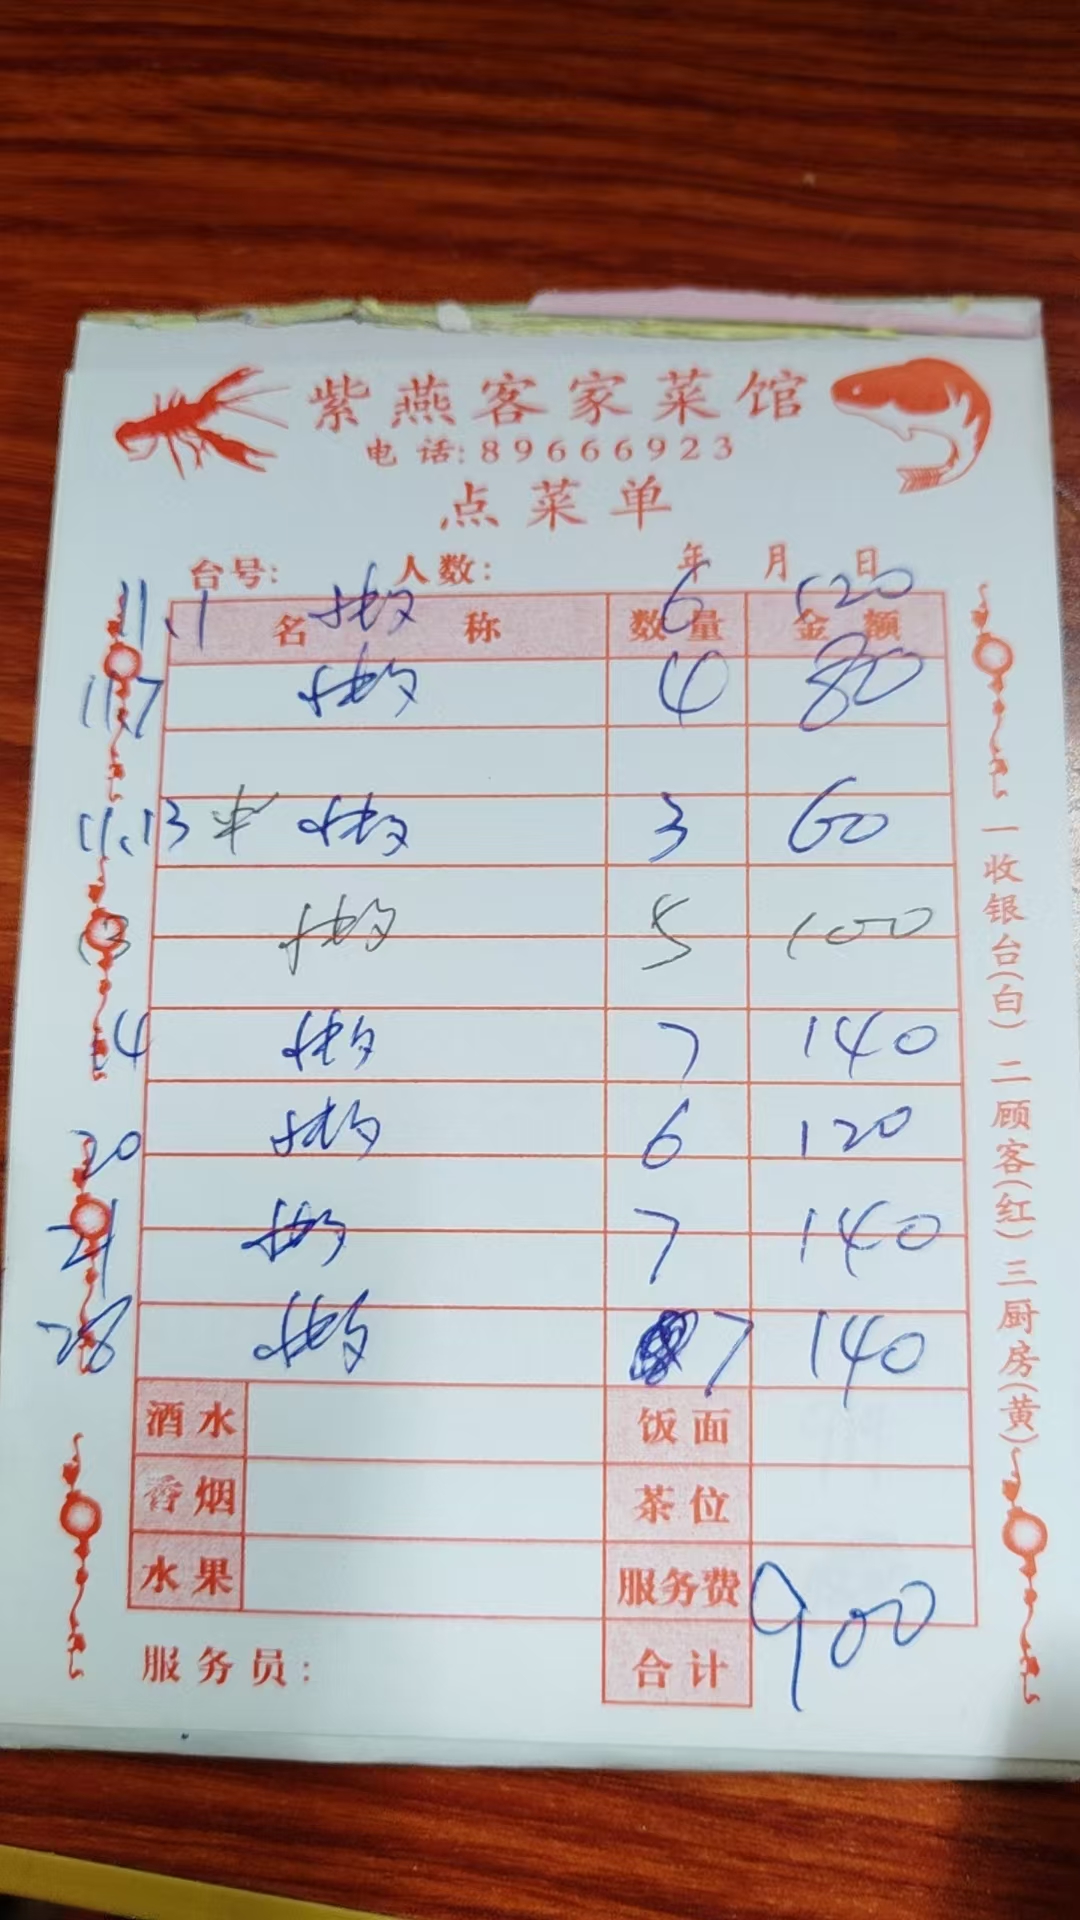 紫燕客家菜馆
电话:89666923
点菜单
台号: 人数: 年 月 日
11.1 名称 数量 6 金额 120
11.7 4 80
11.13 3 60
13 5 100
14 7 140
20 6 120
21 7 140
28 7 140
酒水 饭面
香烟 茶位
水果 服务费
服务员: 合计 900
一收银台(白) 二顾客(红) 三厨房(黄)